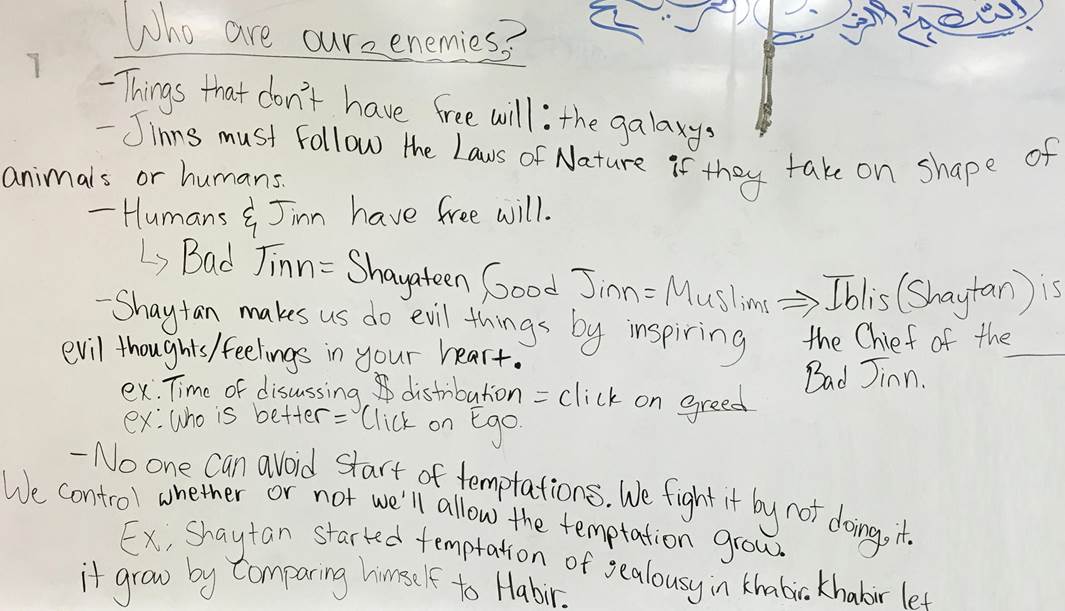 Who are our enemies?
- Things that don't have free will: the galaxy.
- Jinns must follow the Laws of Nature if they take on shape of
animals or humans.
- Humans & Jinn have free will.
↳ Bad Jinn = Shayateen, Good Jinn = Muslims ⇒ Iblis (Shaytan) is
the Chief of the
Bad Jinn.
- Shaytan makes us do evil things by inspiring
evil thoughts/feelings in your heart.
ex: Time of discussing $ distribution = click on greed
ex: Who is better = Click on Ego.
- No one can avoid start of temptations. We fight it by not doing it.
We control whether or not we'll allow the temptation grow.
Ex: Shaytan started temptation of jealousy in Khabir. Khabir let
it grow by comparing himself to Habir.